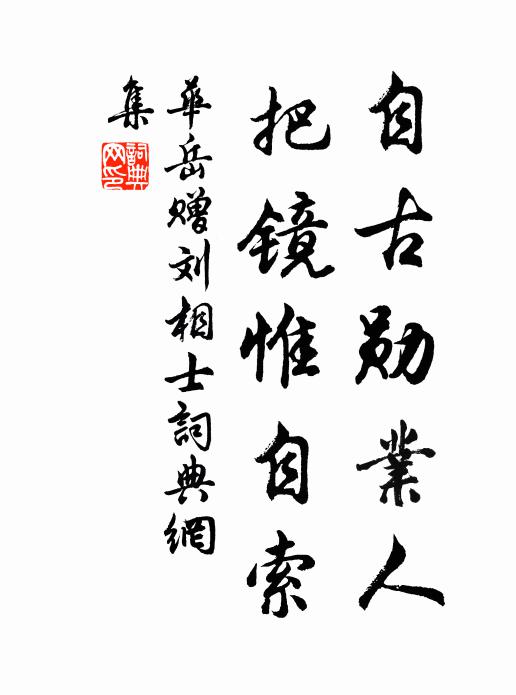 自古勋業人
把镜惟自索
華岳赠刘相士詞典網
集
詞典网印